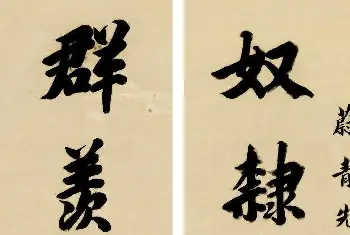 蔚青先
奴隸
群羨